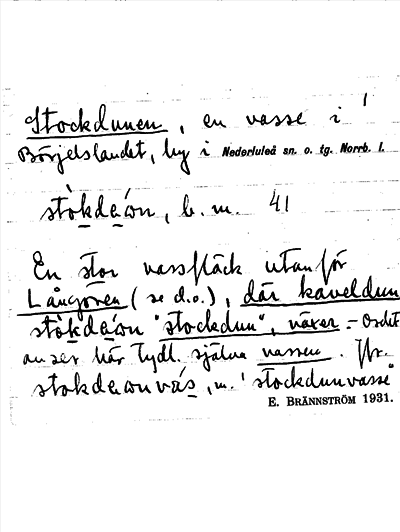 Stockdunen, en vasse i
Börjelslandet, by i Nederluleå sn. o. tg. Norrb. l.
stòkdeàon, b. m. 41
En stor vassfläck utanför
Långören (se d.o.), där kaveldun
stòkdeáon "stockdun", växer. - Ordet
anser här tydl. själva vassen. Jfr.
stokdeaonvás, m. "stockdunvasse"
E. BRÄNNSTRÖM 1931.